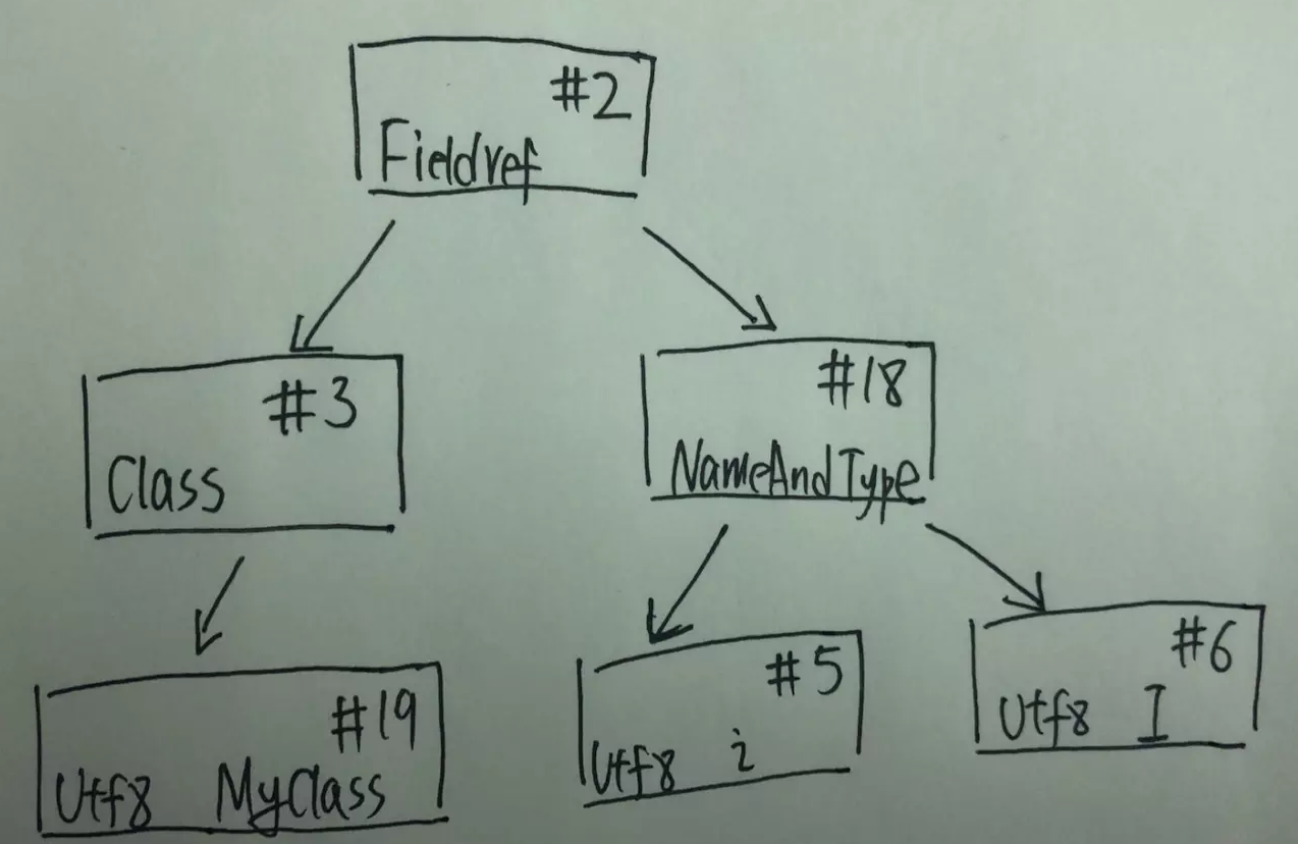 #2
Fieldref
#3
Class
#18
NameAndType
#19
Utf8 MyClass
#5
Utf8 i
#6
Utf8 I